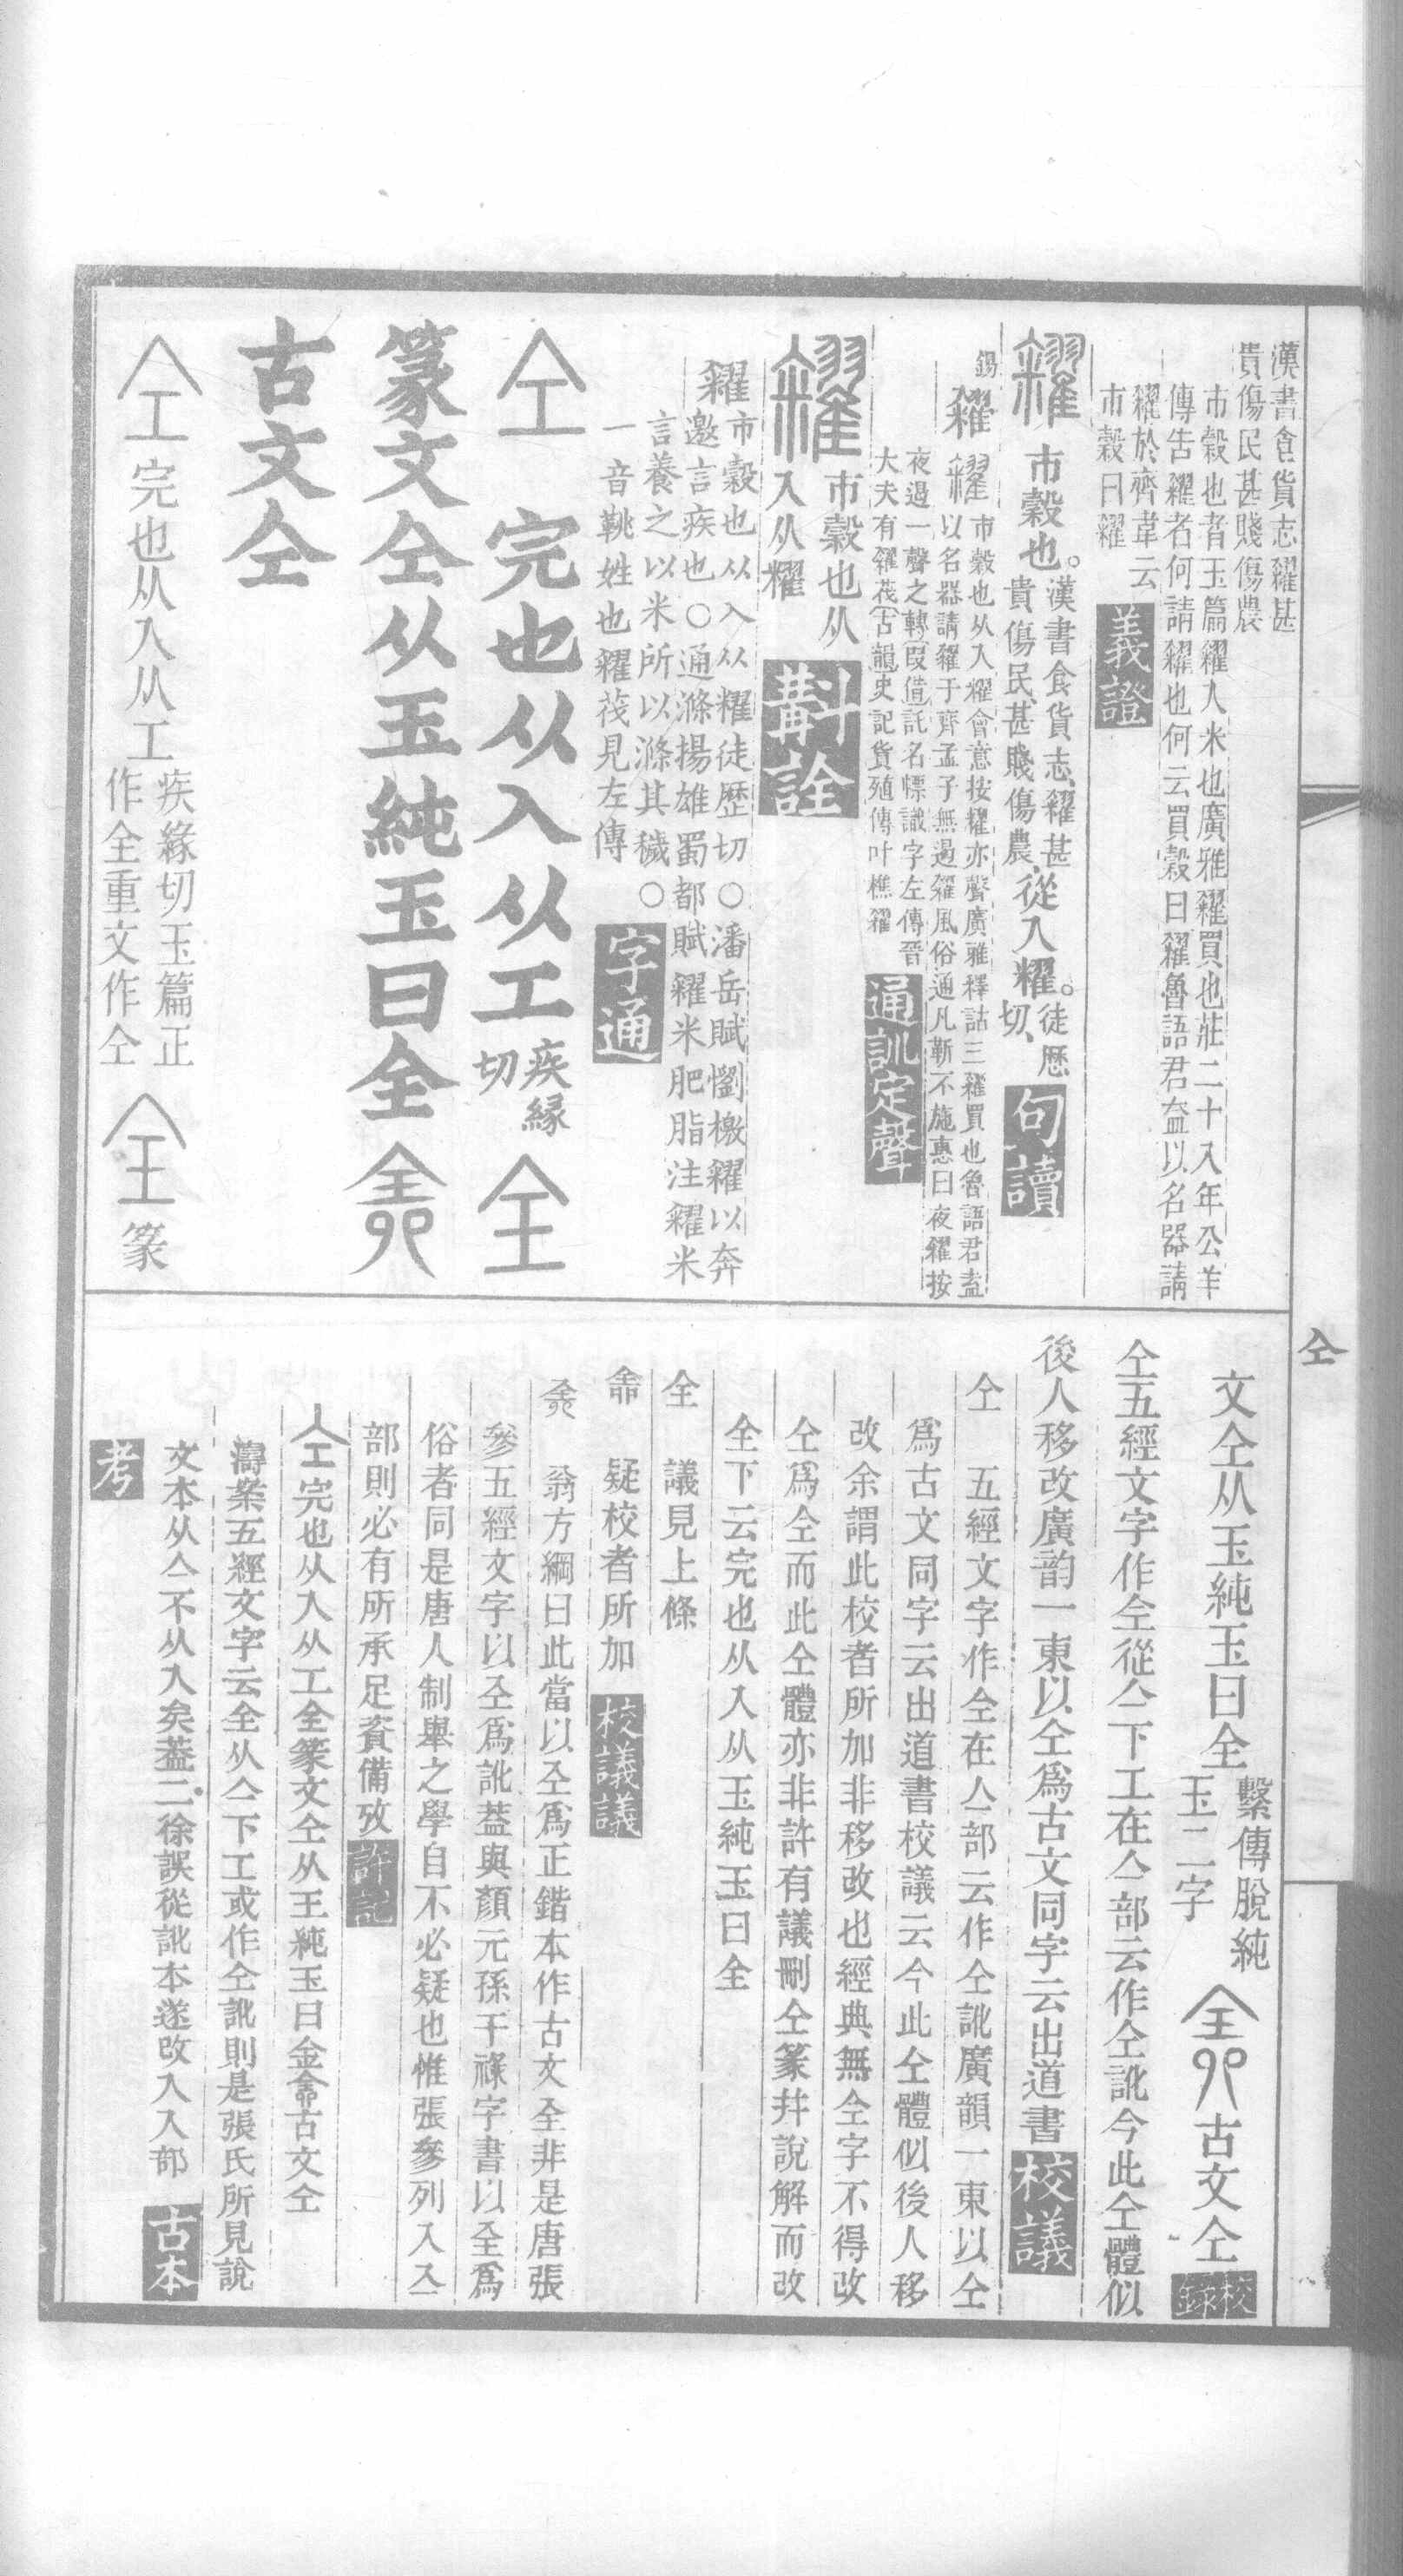 漢書食貨志糴甚
貴傷民甚賤傷農
市穀也者玉篇糴入米也廣雅糴買也莊二十八年公羊
傳告糴者何請糴也何云買穀曰糴魯語君盍以名器請
糴於齊韋云
市穀曰糴
義證
糴
市穀也。
漢書食貨志、糴甚
貴傷民、甚賤傷農、
從入䊮。
徒歷
切、
句讀
錫
糴
糴市穀也从入䊮會意按䊮亦聲廣雅釋詁三糴買也魯語君盍
以名器請糴于齊孟子無遏糴風俗通凡靳不施惠曰夜糴按
夜遏一聲之轉叚借託名幖識字左傳晉
大夫有糴茷古韻史記貨殖傳叶樵糴
通訓定聲
糴
市穀也从
入从䊮
斠詮
糴
市穀也从入从䊮徒歷切○潘岳賦懰檄糴以奔
邀言疾也○通滌揚雄蜀都賦糴米肥脂注糴米
言養之以米所以滌其穢○
一音鞉姓也糴茷見左傳
字通
仝
完也从入从工
疾緣
切
全
篆文仝从玉純玉曰全
古文仝
仝
完也从入从工
疾緣切玉篇正
作全重文作仝
全
篆
仝
文仝从玉純玉曰全
繫傳脫純
玉二字
古文仝
校錄
仝五經文字作仝從亼下工在亼部云作仝訛今此仝體似
後人移改廣韵一東以仝爲古文同字云出道書
校議
仝
五經文字作仝在亼部云作仝訛廣韻一東以仝
爲古文同字云出道書校議云今此仝體似後人移
改余謂此校者所加非移改也經典無仝字不得改
仝爲仝而此仝體亦非許有議刪仝篆并說解而改
全下云完也从入从玉純玉曰全
全
議見上條
疑校者所加
校議議
翁方綱曰此當以全爲正鍇本作古文全非是唐張
參五經文字以全爲訛葢與顏元孫干祿字書以全爲
俗者同是唐人制舉之學自不必疑也惟張參列入亼
部則必有所承足資備攷
許記
仝完也从入从工全篆文仝从王純玉曰全古文仝
濤案五經文字云全从亼下工或作仝訛則是張氏所見說
文本从亼不从入矣葢二徐誤從訛本遂改入入部
古本
考